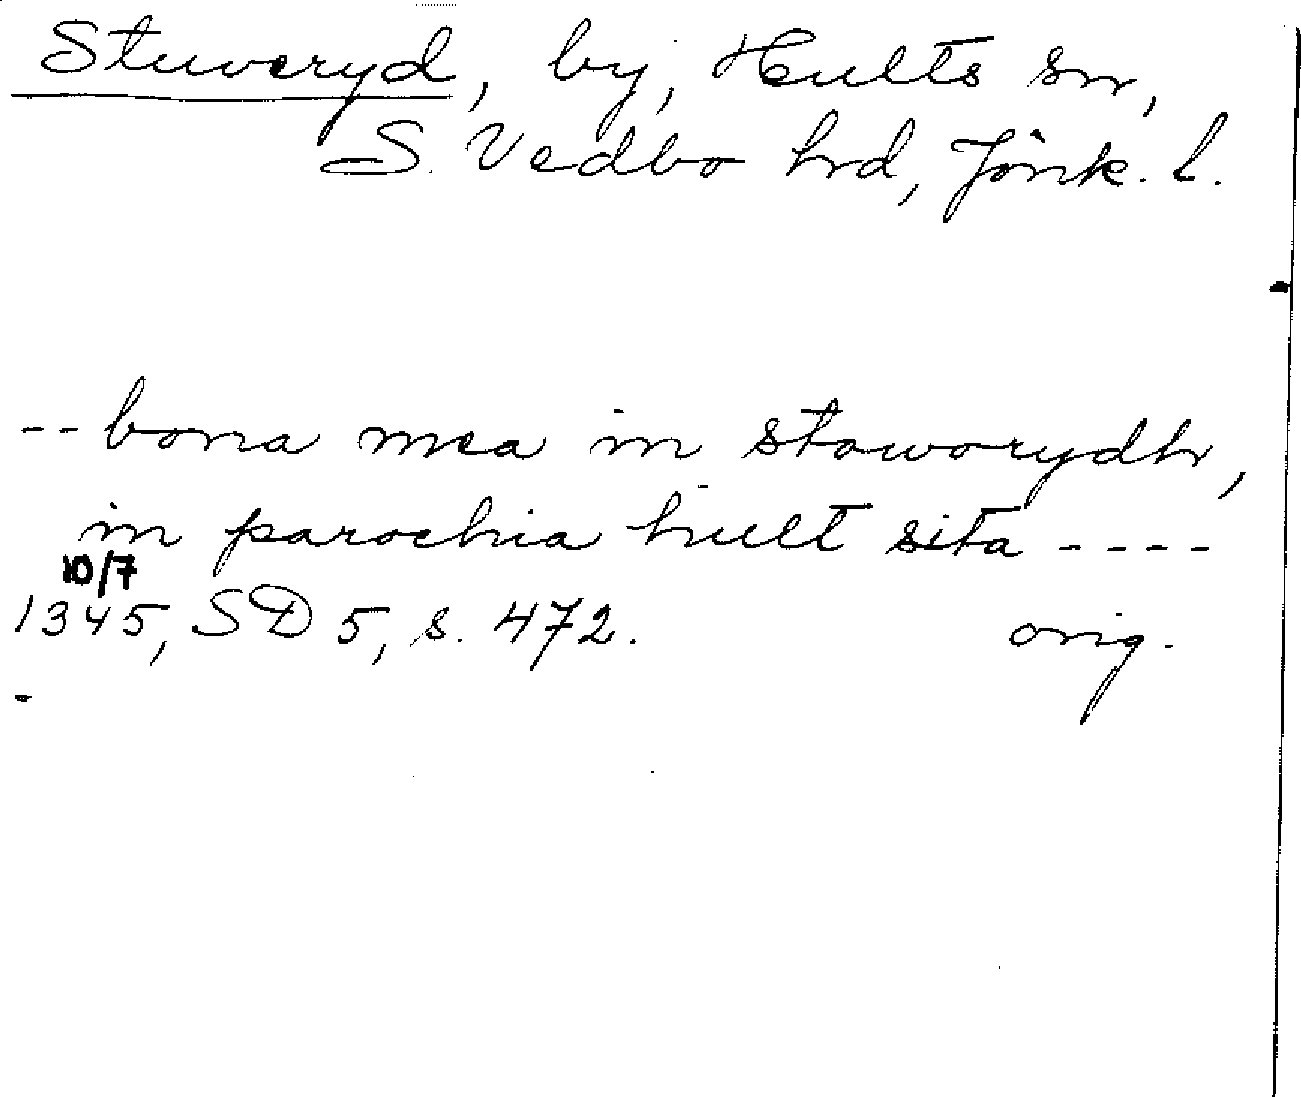 Stuveryd, by, Hults sn,
S. Vedbo hrd, Jönk. l.
-- bona mea in stoworydh,
in parochia hult sita ----
10/7
1345, SD 5, s. 472. orig.